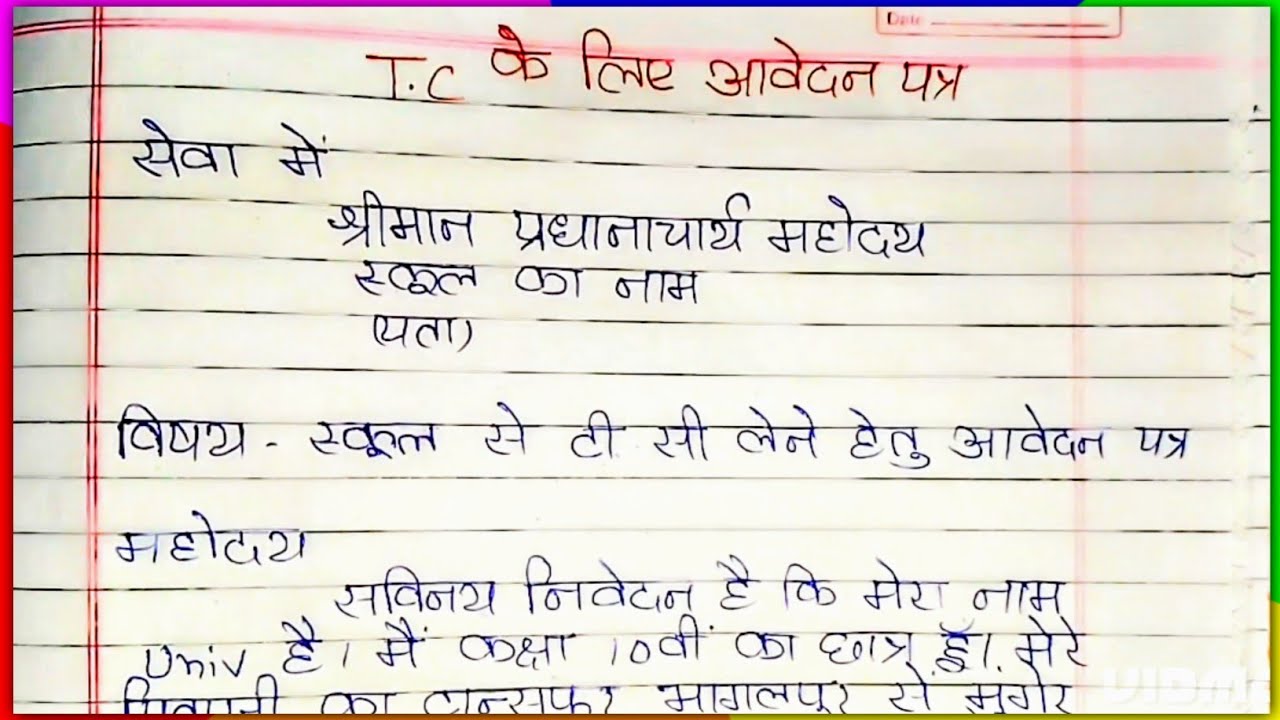 Date
T.C के लिए आवेदन पत्र
सेवा में
श्रीमान प्रधानाचार्य महोदय
स्कूल का नाम
(पता)
विषय - स्कूल से टी सी लेने हेतु आवेदन पत्र
महोदय
सविनय निवेदन है कि मेरा नाम
Univ है। मैं कक्षा 10वीं का छात्र हूँ। मेरे
पिताजी का ट्रान्सफर भागलपुर से मुंगेर